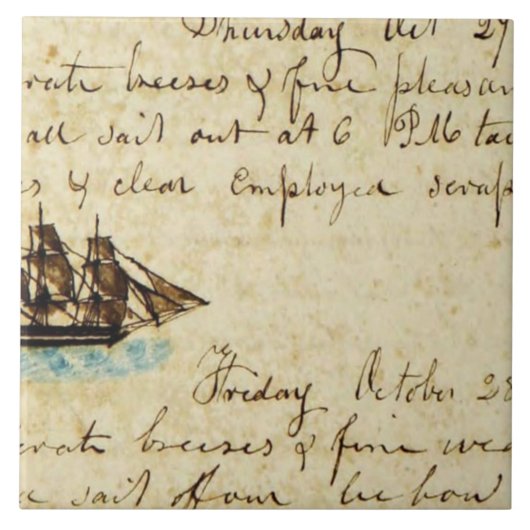 Thursday Oct 27
rate breezes & fine pleasan
all sail out at 6 PM tac
s & clear Employed scrap
Friday October 28
erate breezes & fine wea
sail off our lee bow